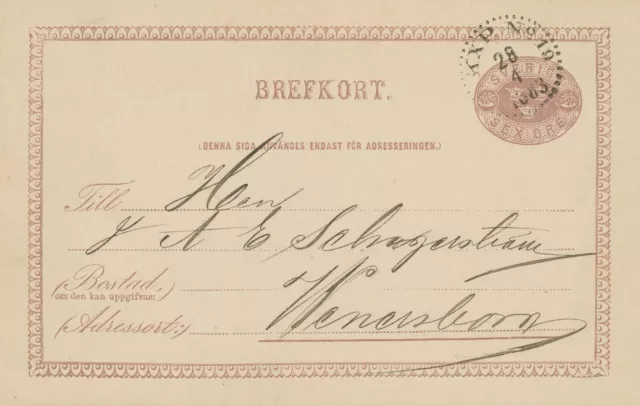 PXP Nº 19
28
4
1883
SVERIGE
SEX ÖRE
BREFKORT.
(DENNA SIDA ANVÄNDES ENDAST FÖR ADRESSERINGEN.)
Till Herr
A E Schagerström
(Bostad,
om den kan uppgifvas:)
(Adressort:) Wenersborg